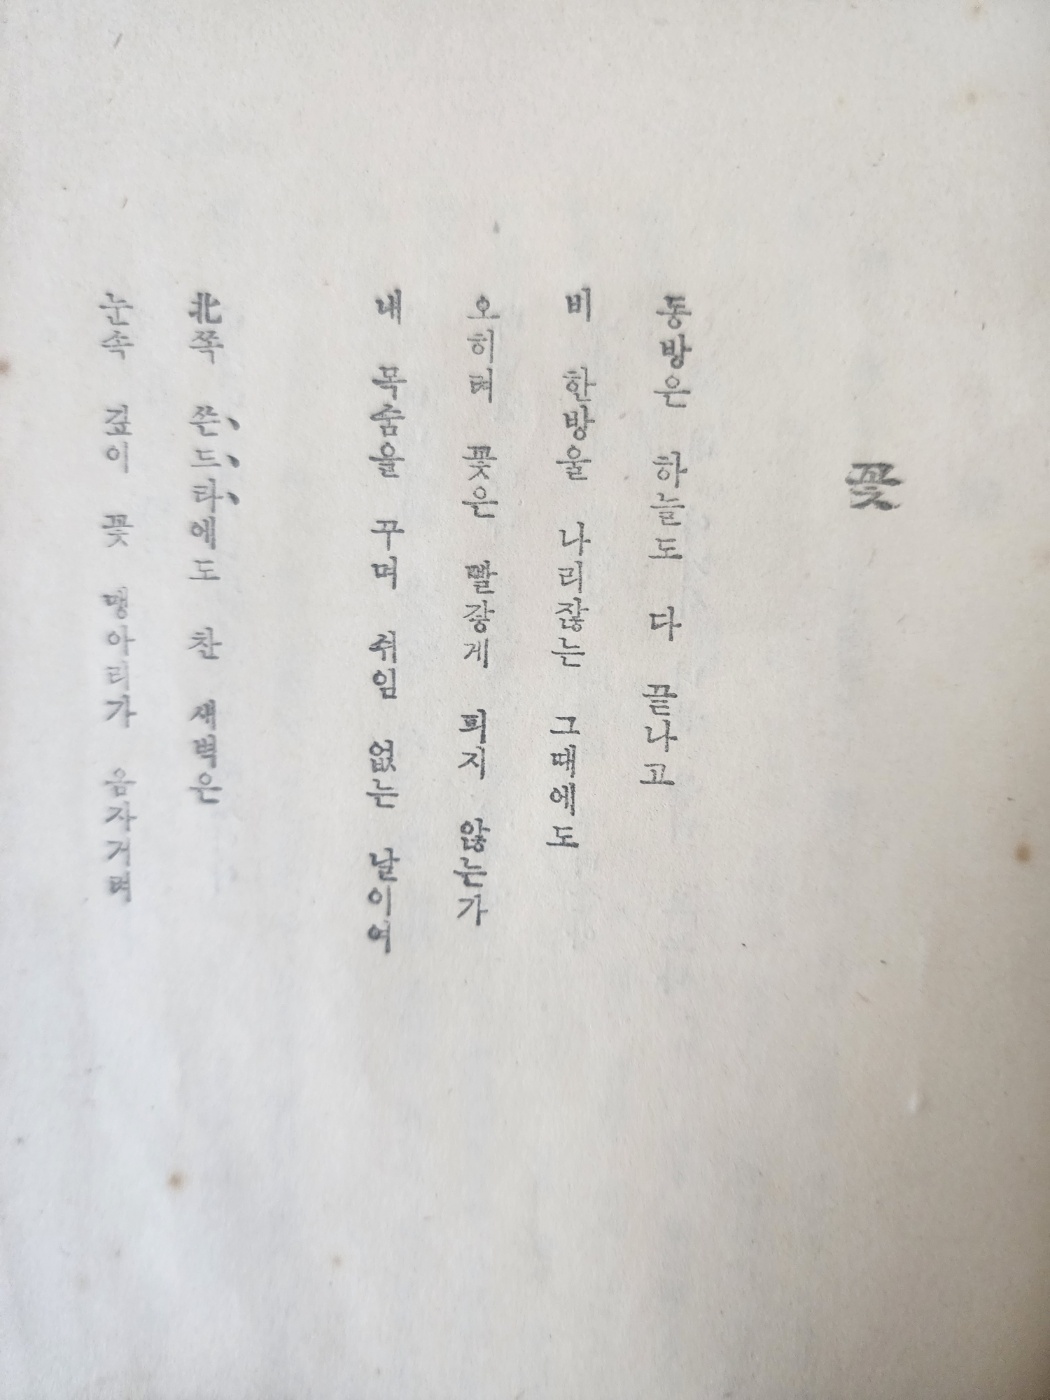 꽃
동방은 하늘도 다 끝나고
비 한방울 나리잖는 그때에도
오히려 꽃은 빨갛게 피지 않는가
내 목숨을 꾸며 쉬임 없는 날이여
北쪽 쯘드라에도 찬 새벽은
눈속 깊이 꽃 맹아리가 옴자거려